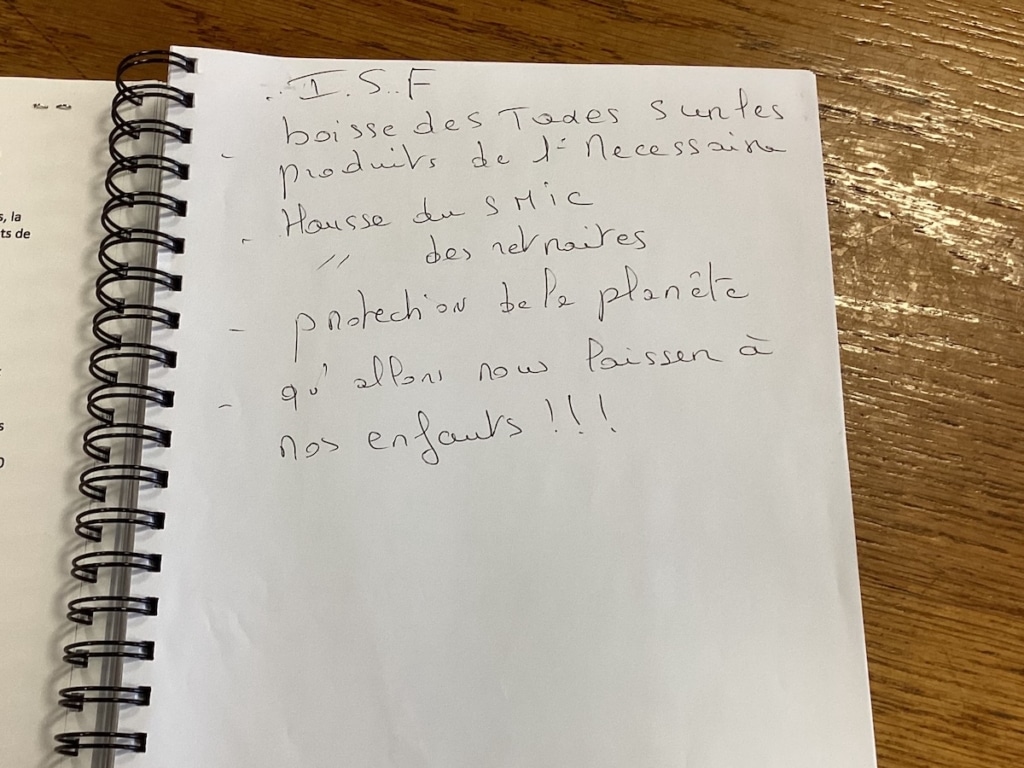 s, la
ts de
s
I.S.F
- baisse des Taxes sur les
produits de 1e Necessaire
- Hausse du SMic
" des retraites
- protection de la planète
- qu'allons nous laisser à
nos enfants !!!